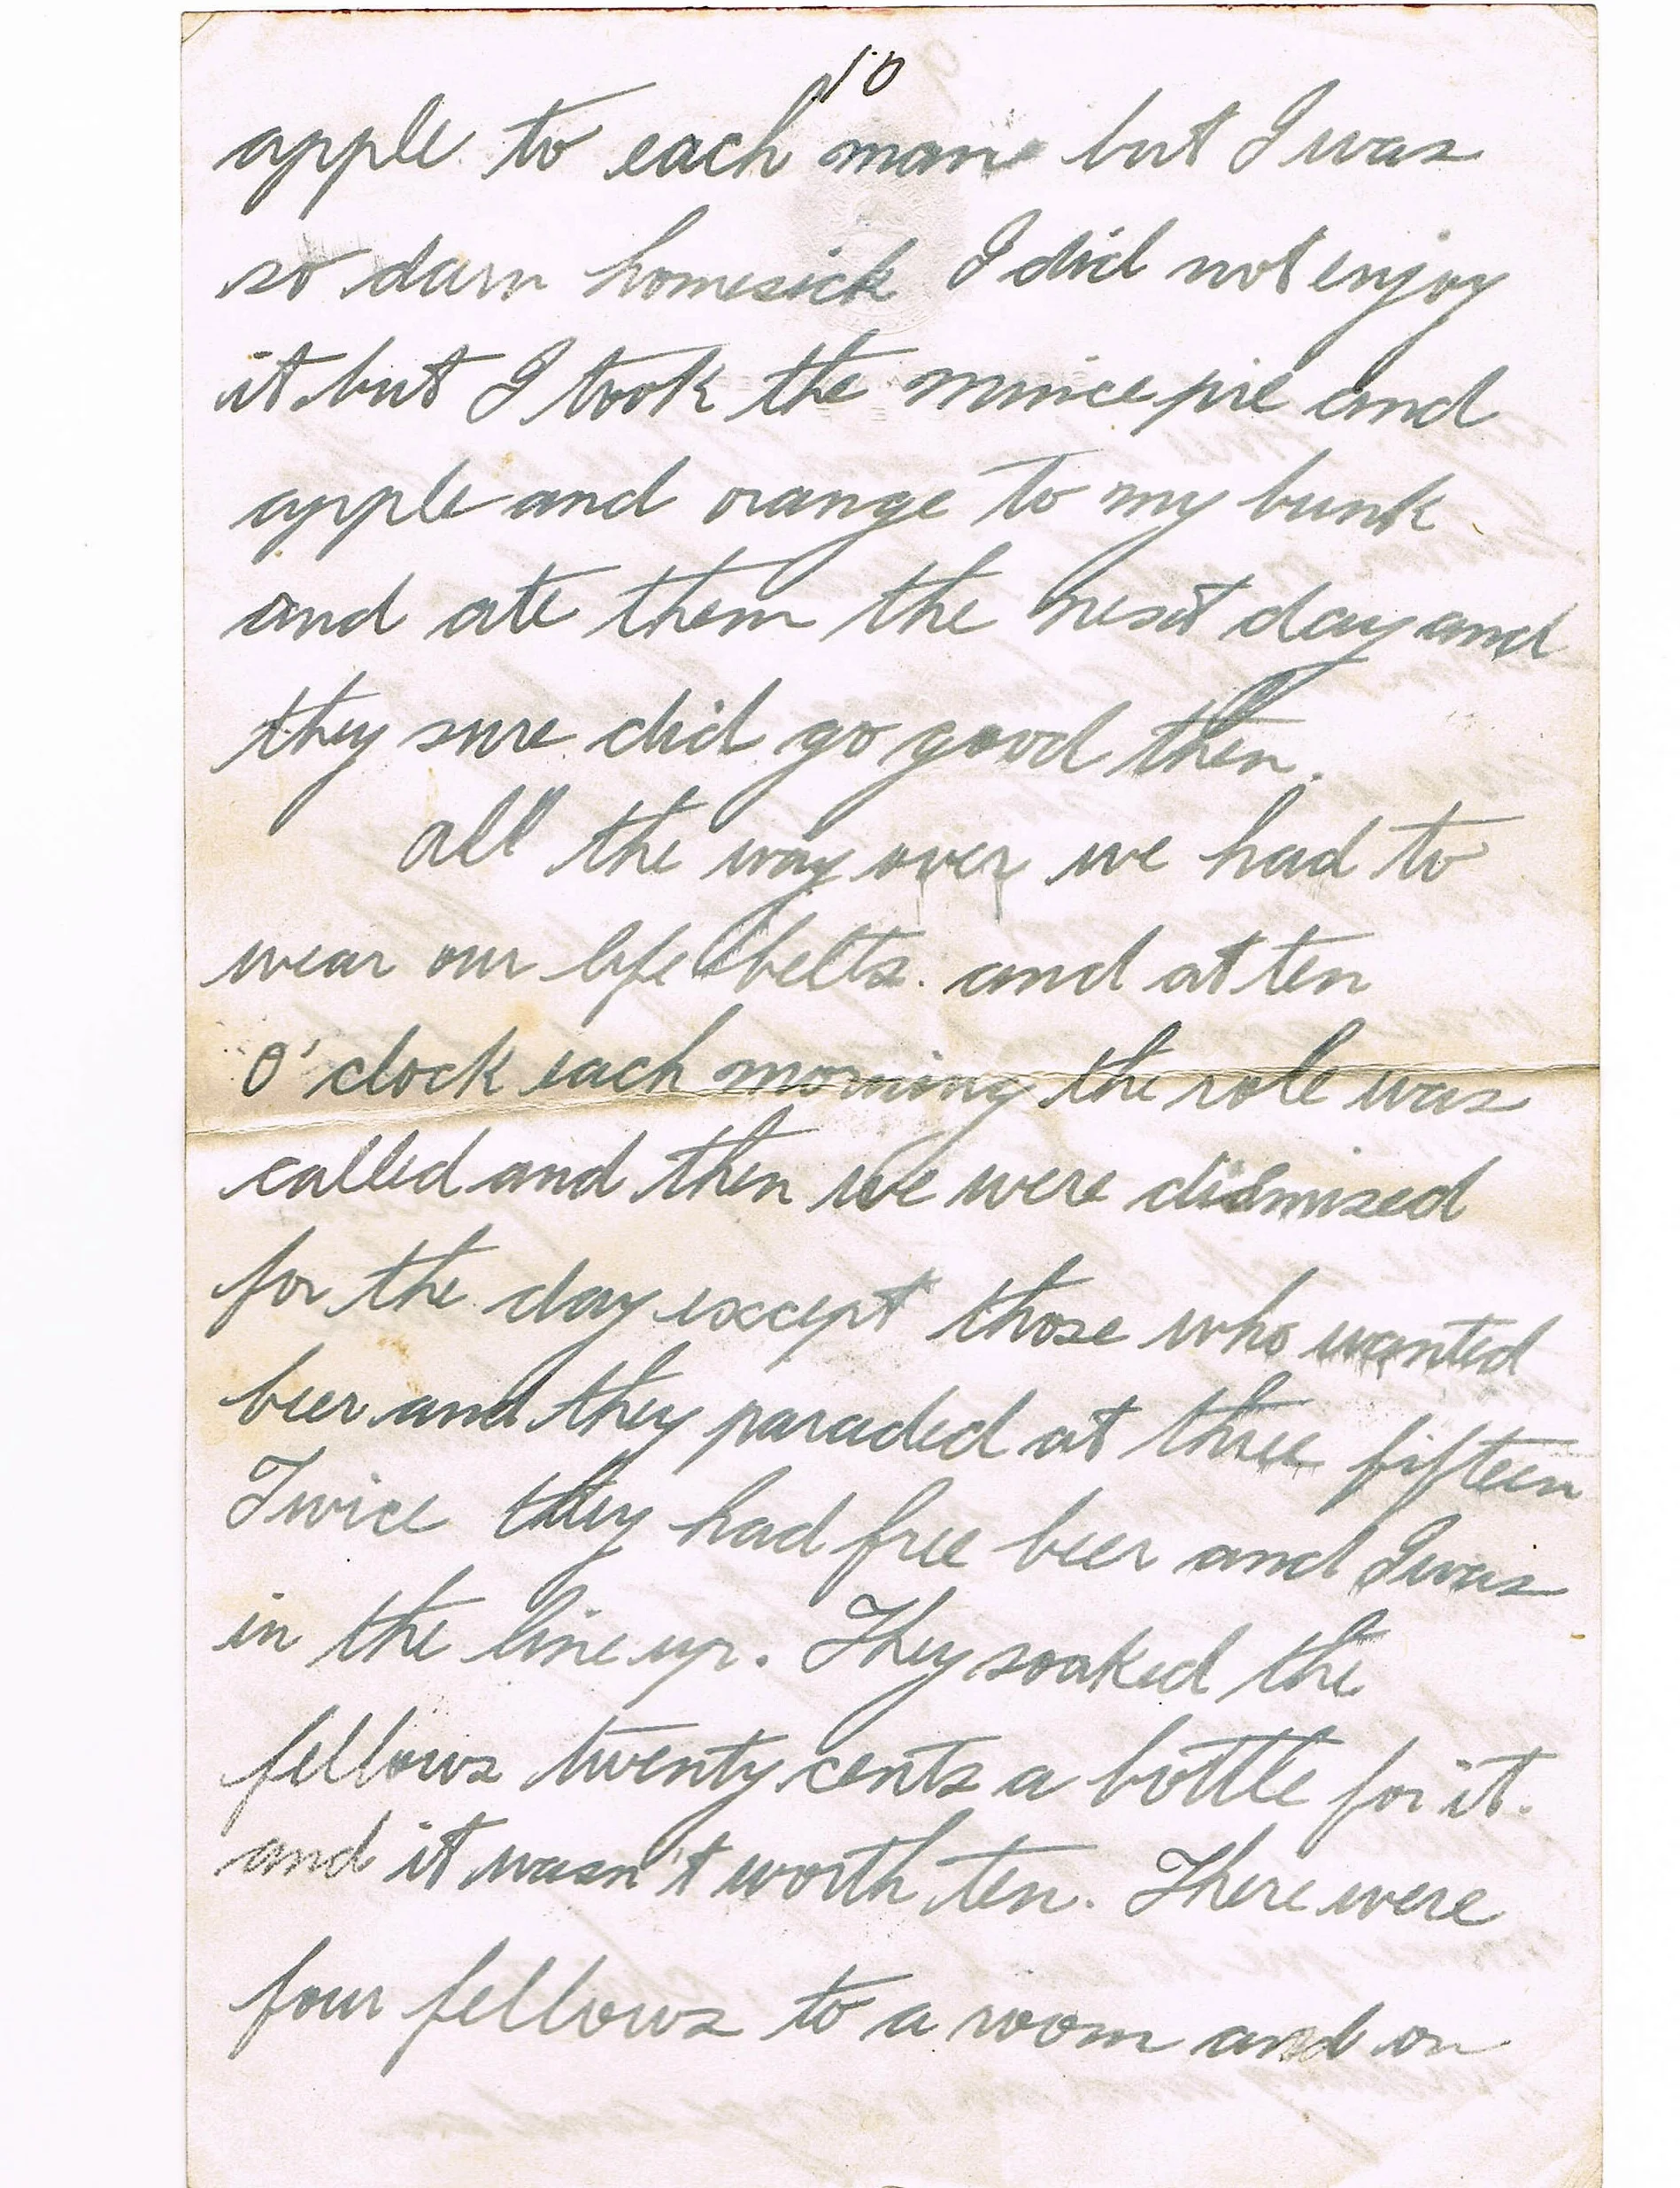 10
apple to each man but I was
so darn homesick I did not enjoy
it but I took the mince pie and
apple and orange to my bunk
and ate them the next day and
they sure did go good then.
All the way over we had to
wear our life belts. and at ten
O'clock each morning the role was
called and then we were dismised
for the day except those who wanted
beer and they paraded at three fifteen
Twice they had free beer and I was
in the line up. They soaked the
fellows twenty cents a bottle for it.
and it wasn't worth ten. There were
four fellows to a room and on